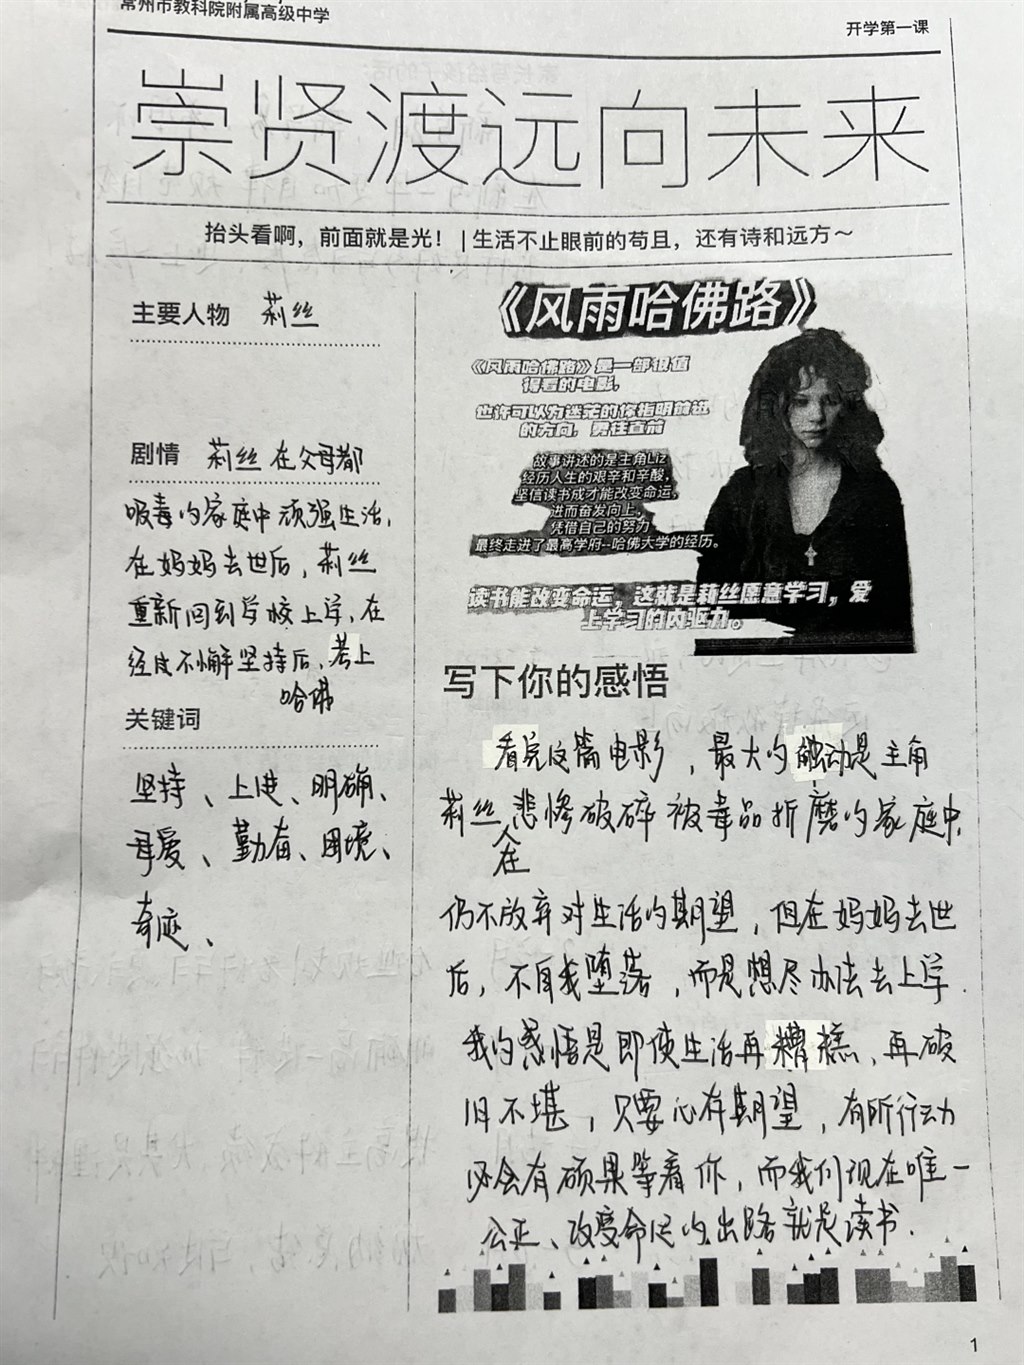 常州市教科院附属高级中学
开学第一课
崇贤渡远向未来
抬头看啊，前面就是光！ | 生活不止眼前的苟且，还有诗和远方～
主要人物 莉丝
剧情 莉丝在父母都
吸毒的家庭中顽强生活，
在妈妈去世后，莉丝
重新回到学校上学，在
经过不懈坚持后，考上
哈佛
关键词
坚持、上进、明确、
母爱、勤奋、困境、
奇迹、
《风雨哈佛路》
《风雨哈佛路》是一部很值
得看的电影，
也许可以为迷茫的你指明前进
的方向，勇往直前
故事讲述的是主角Liz
经历人生的艰辛和辛酸，
坚信读书成才能改变命运，
进而奋发向上，
凭借自己的努力
最终走进了最高学府--哈佛大学的经历。
读书能改变命运，这就是莉丝愿意学习，爱
上学习的内驱力。
写下你的感悟
看完这篇电影，最大的触动是主角
莉丝在悲惨破碎被毒品折磨的家庭中，
仍不放弃对生活的期望，但在妈妈去世
后，不自我堕落，而是想尽办法去上学．
我的感悟是即使生活再糟糕、再破
旧不堪，只要心存期望，有所行动
必会有硕果等着你，而我们现在唯一
公正、改变命运的出路就是读书．
1